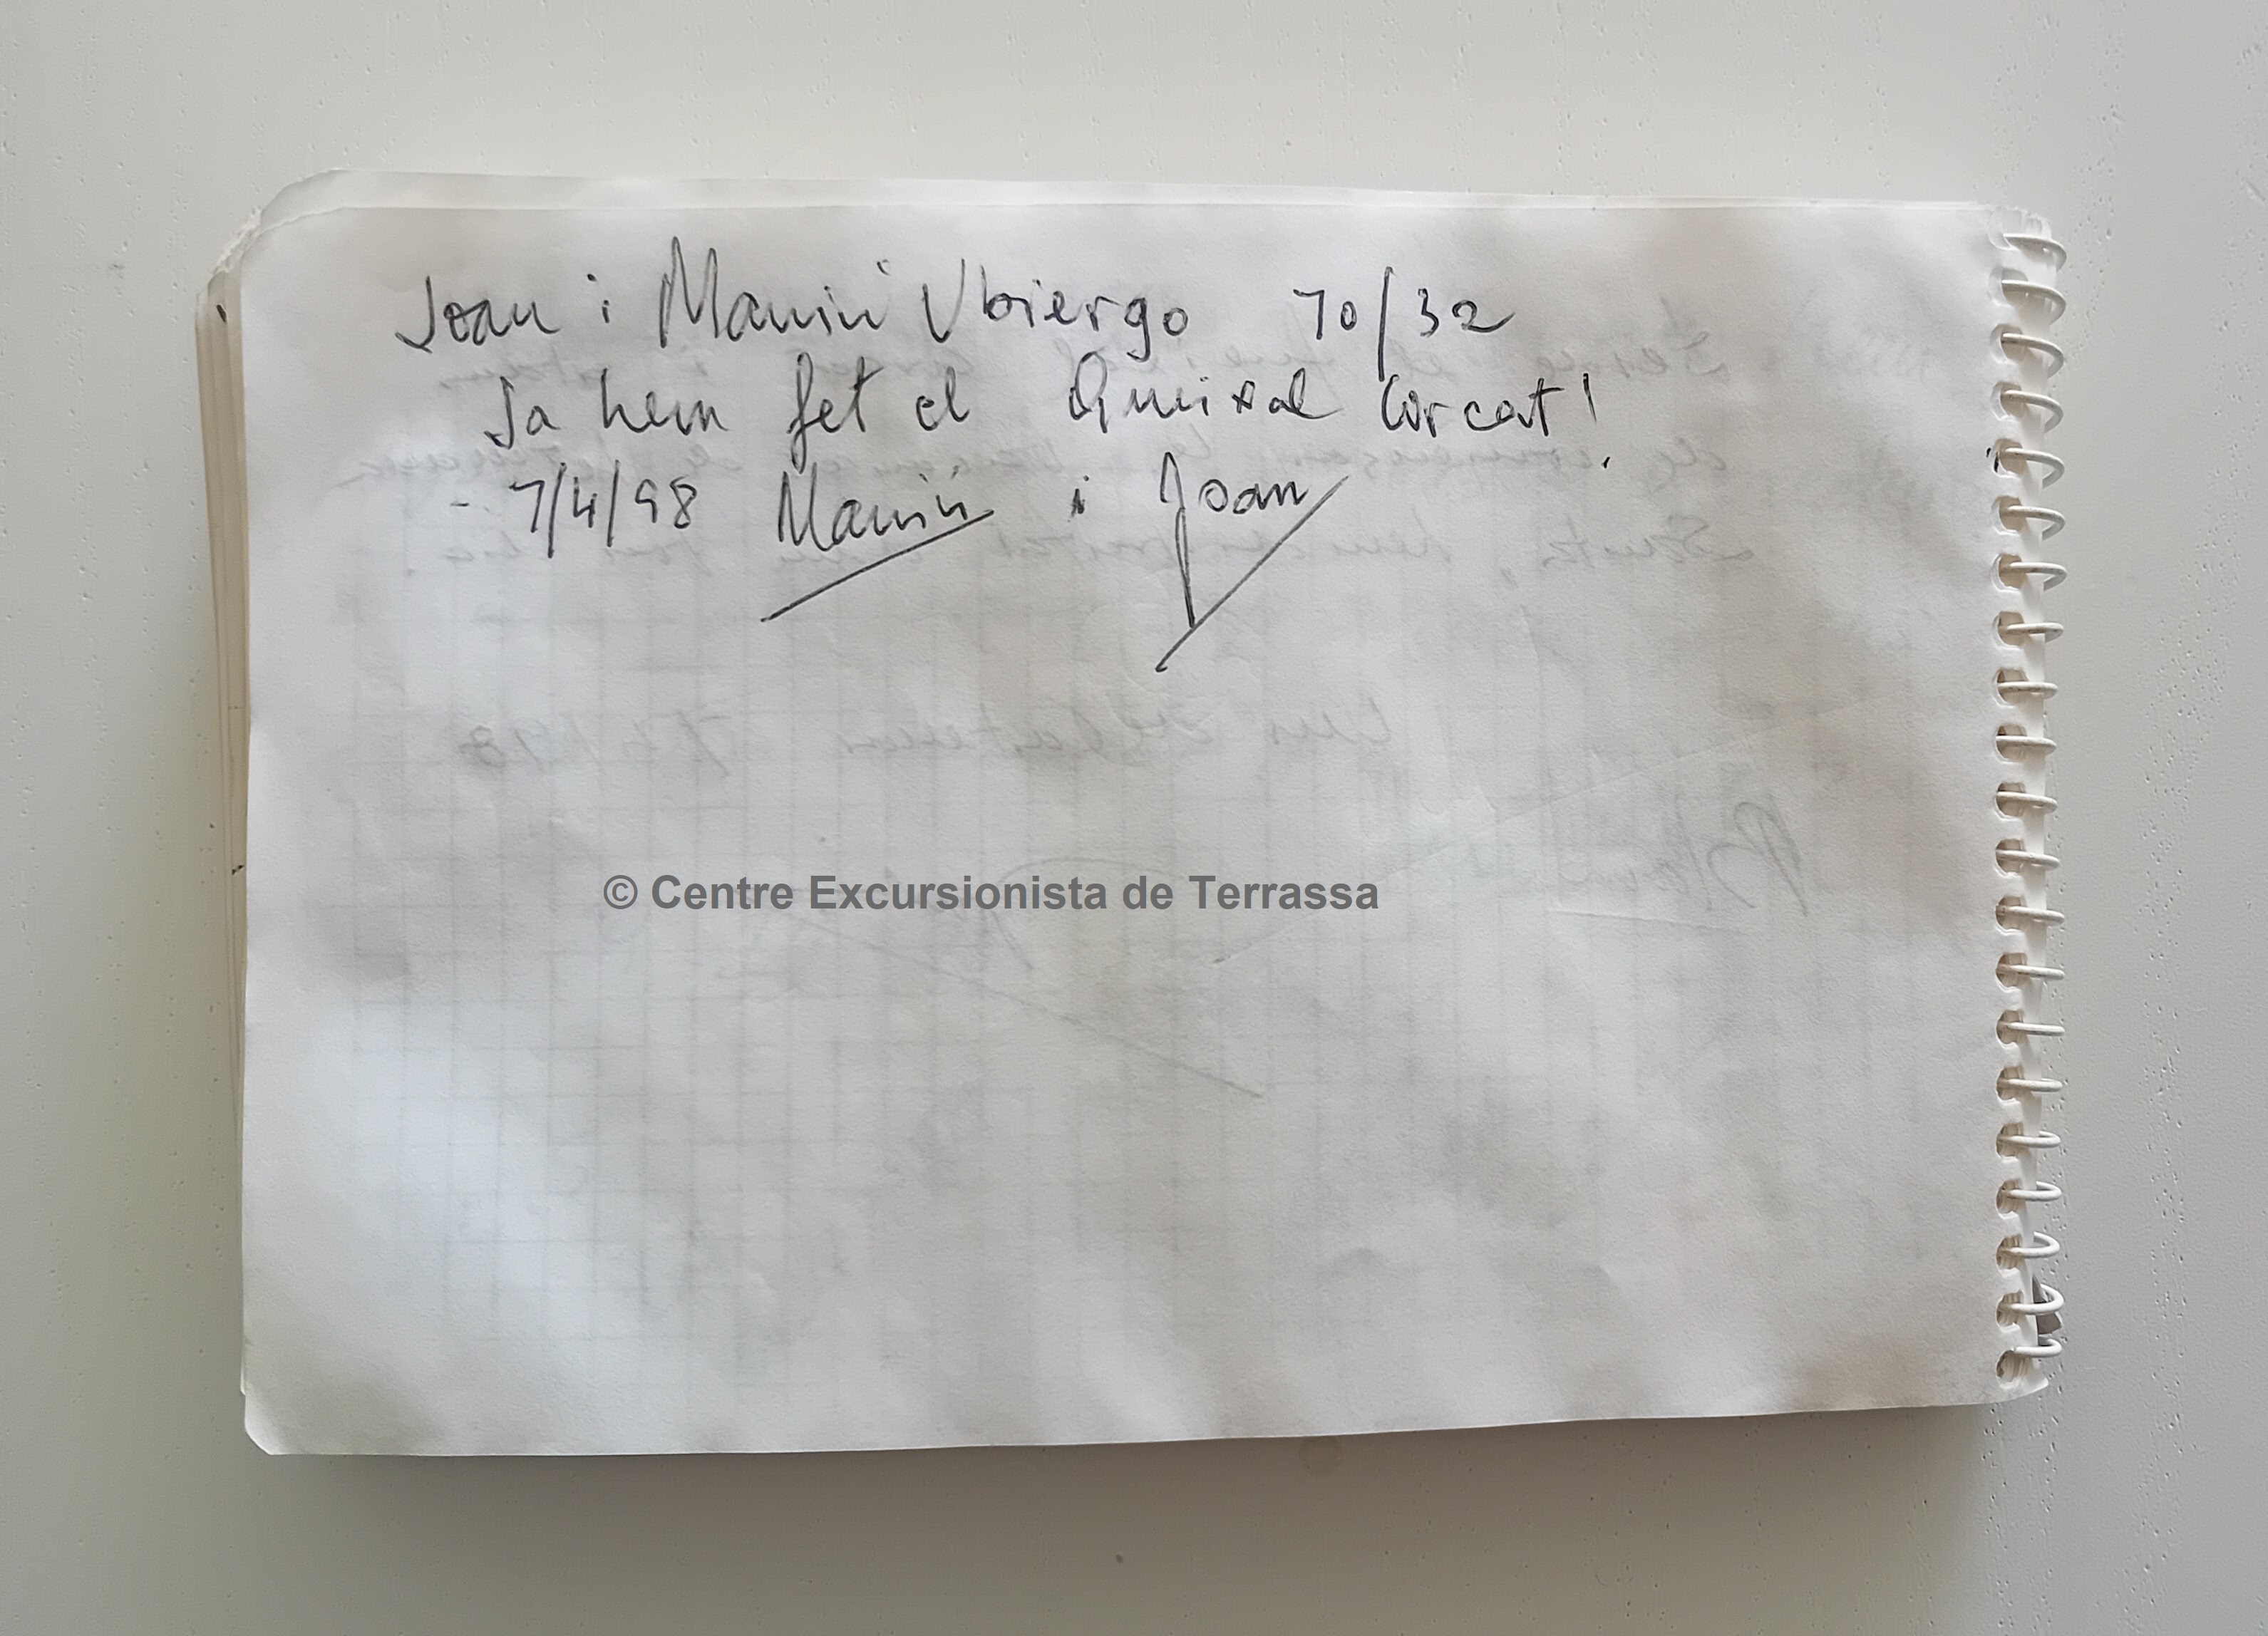 Joan i Manin Ubiergo 70/32
Ja hem fet el Queixal Corcat!
- 7/4/98 Manin i Joan
© Centre Excursionista de Terrassa